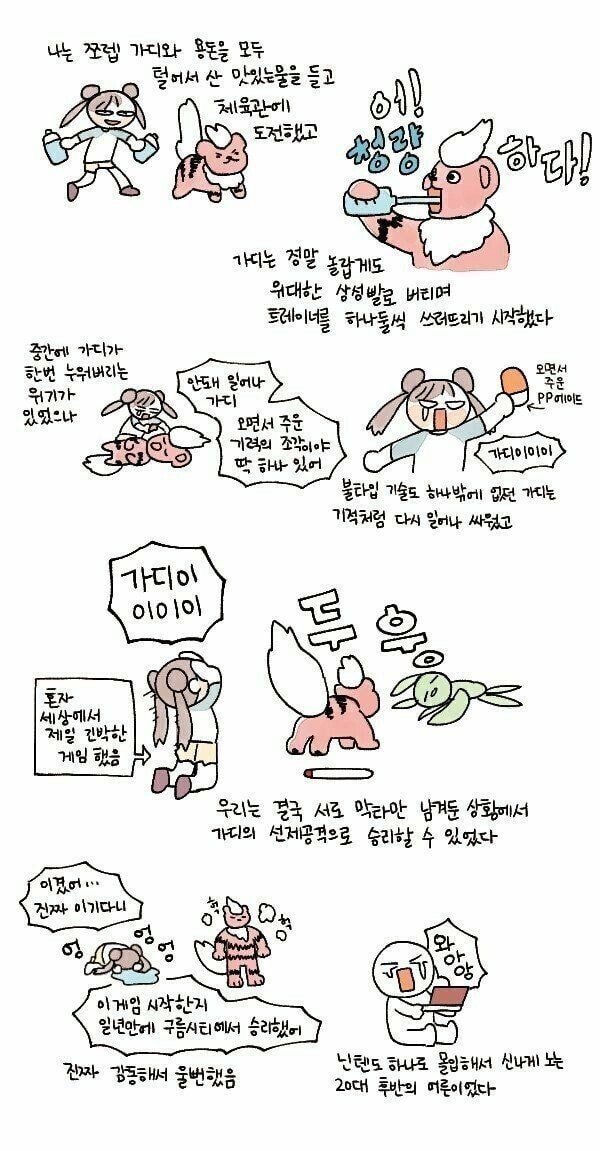 나는 쪼렙 가디와 용돈을 모두
털어서 산 맛있는물을 들고
체육관에
도전했고
어!
청량
하다!
가디는 정말 놀랍게도
위대한 상성빨로 버티며
트레이너를 하나둘씩 쓰러뜨리기 시작했다
중간에 가디가
한번 누워버리는
위기가
있었으나
안돼 일어나
가디
오면서 주운
기력의 조각이야
딱 하나 있어
오면서
주운
PP에이드
가디이이이
불타입 기술도 하나밖에 없던 가디는
기적처럼 다시 일어나 싸웠고
가디이
이이이
혼자
세상에서
제일 긴박한
게임 했음
두웅
우리는 결국 서로 막타만 남겨둔 상황에서
가디의 선제공격으로 승리할 수 있었다
이겼어...
진짜 이기다니
엉
엉엉
헉
헉
이게임 시작한지
일년만에 구름시티에서 승리했어
진짜 감동해서 울뻔했음
와
아
앙
닌텐도 하나로 몰입해서 신나게 노는
20대 후반의 어른이었다